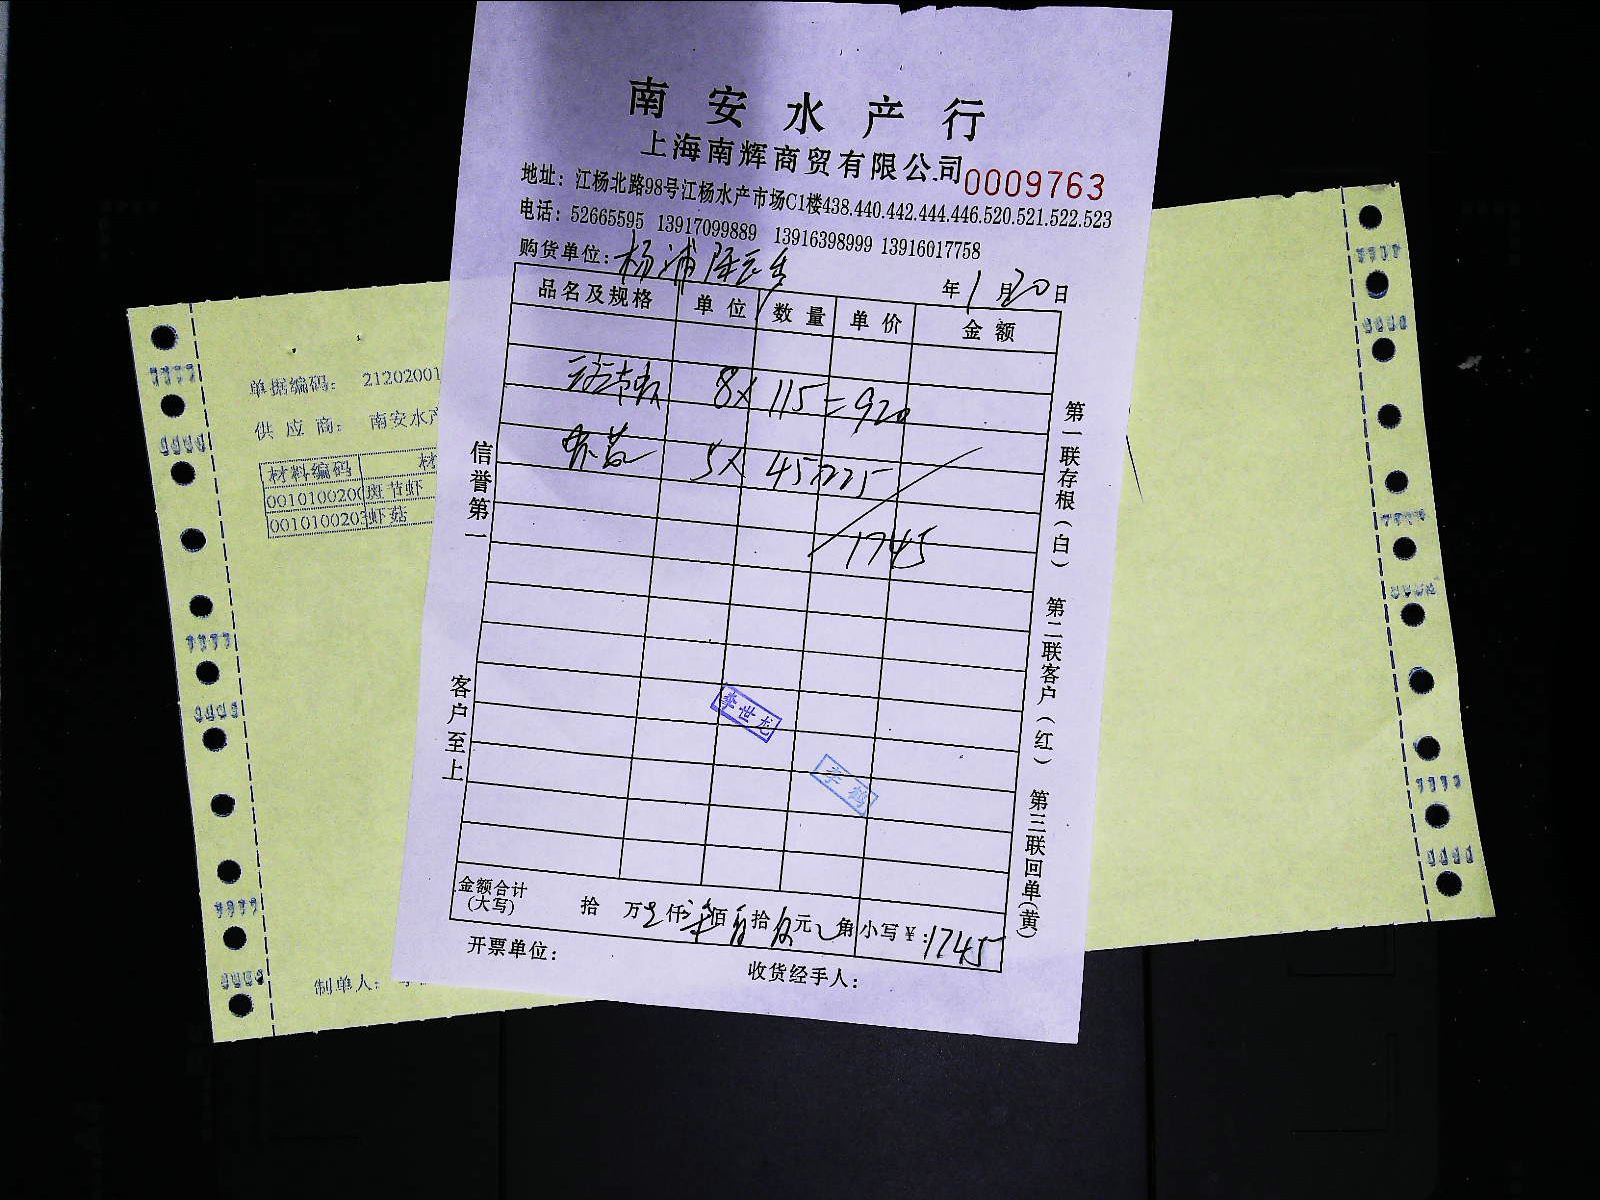 南安水产行
上海南辉商贸有限公司 0009763
地址：江杨北路98号江杨水产市场C1楼438.440.442.444.446.520.521.522.523
电话：52665595 13917099889 13916398999 13916017758
购货单位：杨浦
年1月20日
品名及规格 单位 数量 单价 金额
8× 115=920
虾菇 5× 45 225
1745
信誉第一
客户至上
第一联存根（白） 第二联客户（红） 第三联回单（黄）
李世龙
李鹤
金额合计（大写） 拾 万 仟 柒佰 拾 元 角 小写￥：1745
开票单位：
收货经手人：
单据编码： 21202001
供应商： 南安水产
材料编码 材
0010100200 斑节虾
0010100203 虾菇
制单人：